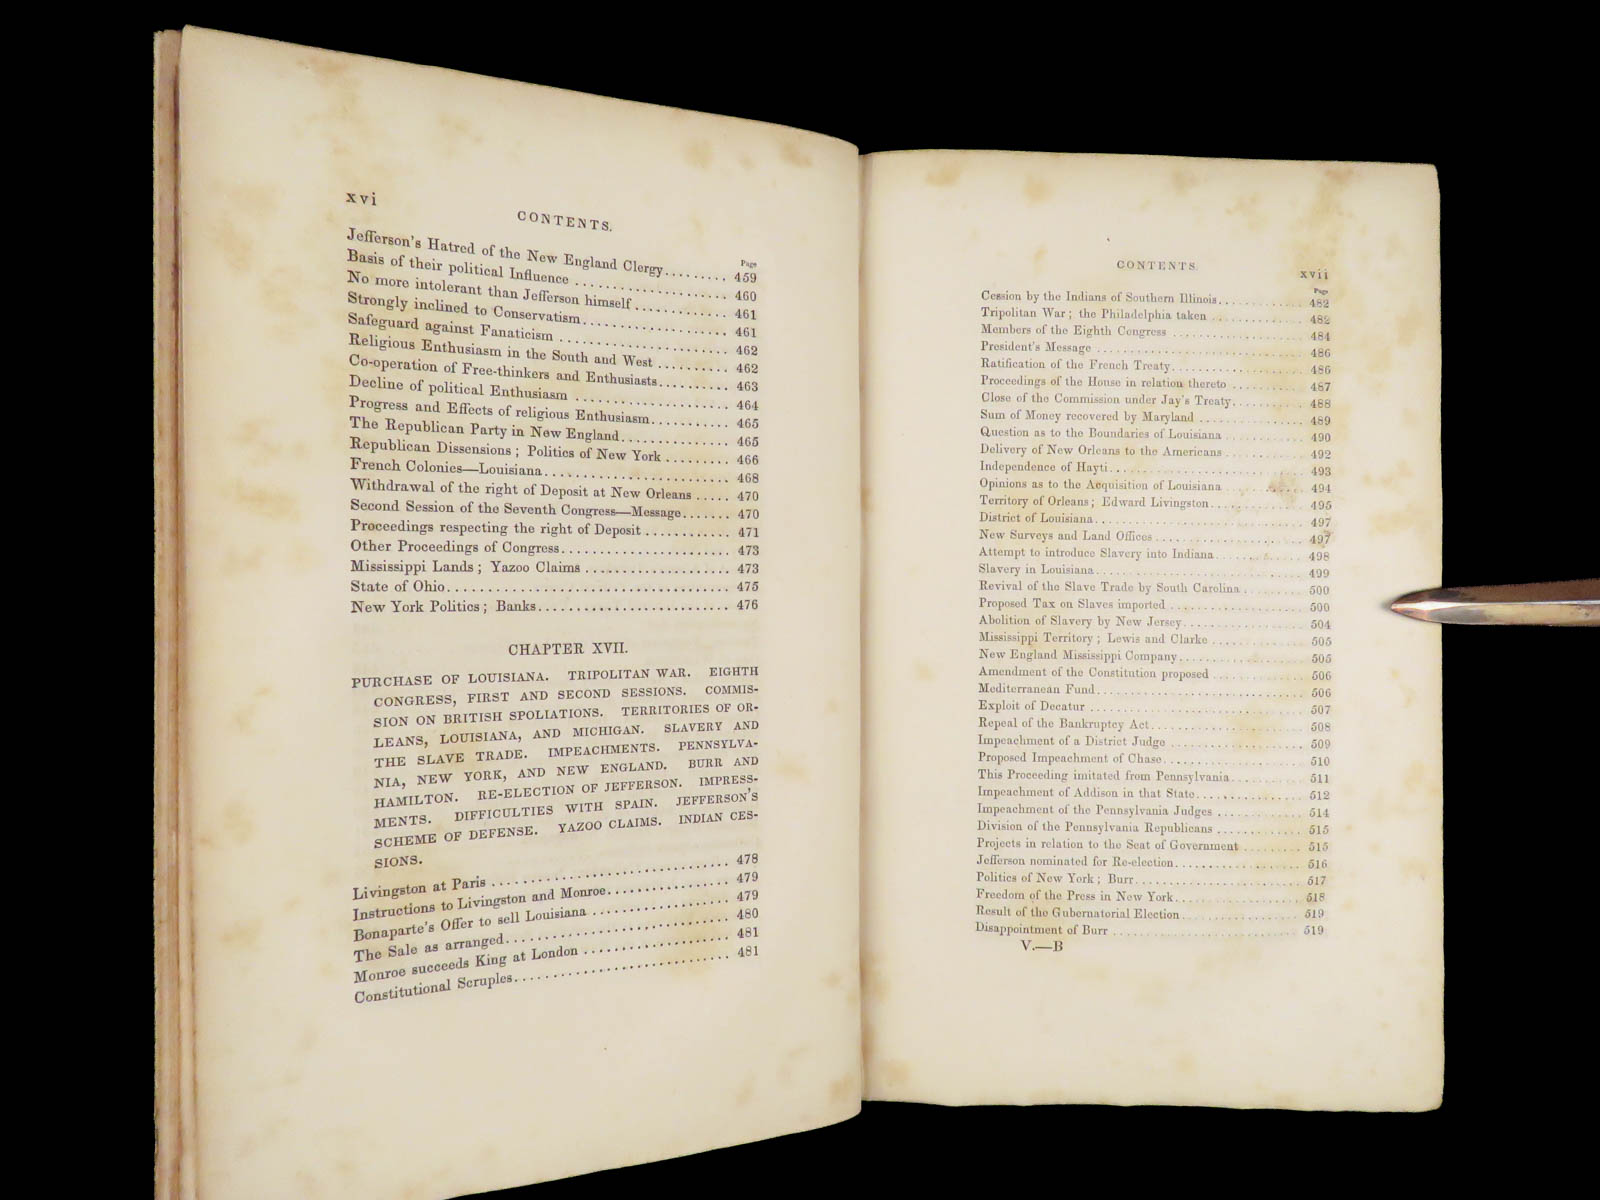 xvi
CONTENTS.
Page
Jefferson's Hatred of the New England Clergy......... 459
Basis of their political Influence .................... 460
No more intolerant than Jefferson himself ............. 461
Strongly inclined to Conservatism................... 461
Safeguard against Fanaticism ...................... 462
Religious Enthusiasm in the South and West .......... 462
Co-operation of Free-thinkers and Enthusiasts.......... 463
Decline of political Enthusiasm .................... 464
Progress and Effects of religious Enthusiasm........... 465
The Republican Party in New England............... 465
Republican Dissensions; Politics of New York ......... 466
French Colonies—Louisiana........................ 468
Withdrawal of the right of Deposit at New Orleans ..... 470
Second Session of the Seventh Congress—Message....... 470
Proceedings respecting the right of Deposit............ 471
Other Proceedings of Congress...................... 473
Mississippi Lands; Yazoo Claims ................... 473
State of Ohio..................................... 475
New York Politics; Banks......................... 476
CHAPTER XVII.
PURCHASE OF LOUISIANA. TRIPOLITAN WAR. EIGHTH
CONGRESS, FIRST AND SECOND SESSIONS. COMMIS-
SION ON BRITISH SPOLIATIONS. TERRITORIES OF OR-
LEANS, LOUISIANA, AND MICHIGAN. SLAVERY AND
THE SLAVE TRADE. IMPEACHMENTS. PENNSYLVA-
NIA, NEW YORK, AND NEW ENGLAND. BURR AND
HAMILTON. RE-ELECTION OF JEFFERSON. IMPRESS-
MENTS. DIFFICULTIES WITH SPAIN. JEFFERSON'S
SCHEME OF DEFENSE. YAZOO CLAIMS. INDIAN CES-
SIONS.
Livingston at Paris ............................... 478
Instructions to Livingston and Monroe................ 479
Bonaparte's Offer to sell Louisiana .................. 479
The Sale as arranged............................. 480
Monroe succeeds King at London ................... 481
Constitutional Scruples............................ 481
CONTENTS.
xvii
Page
Cession by the Indians of Southern Illinois............ 482
Tripolitan War; the Philadelphia taken .............. 482
Members of the Eighth Congress ................... 484
President's Message .............................. 486
Ratification of the French Treaty.................... 486
Proceedings of the House in relation thereto .......... 487
Close of the Commission under Jay's Treaty........... 488
Sum of Money recovered by Maryland ............... 489
Question as to the Boundaries of Louisiana ........... 490
Delivery of New Orleans to the Americans ........... 492
Independence of Hayti............................ 493
Opinions as to the Acquisition of Louisiana ........... 494
Territory of Orleans; Edward Livingston............. 495
District of Louisiana.............................. 497
New Surveys and Land Offices ..................... 497
Attempt to introduce Slavery into Indiana............ 498
Slavery in Louisiana.............................. 499
Revival of the Slave Trade by South Carolina ......... 500
Proposed Tax on Slaves imported ................... 500
Abolition of Slavery by New Jersey................. 504
Mississippi Territory; Lewis and Clarke ............. 505
New England Mississippi Company.................. 505
Amendment of the Constitution proposed ............. 506
Mediterranean Fund.............................. 506
Exploit of Decatur ............................... 507
Repeal of the Bankruptcy Act...................... 508
Impeachment of a District Judge ................... 509
Proposed Impeachment of Chase.................... 510
This Proceeding imitated from Pennsylvania.......... 511
Impeachment of Addison in that State................ 512
Impeachment of the Pennsylvania Judges ............ 514
Division of the Pennsylvania Republicans ............ 515
Projects in relation to the Seat of Government ........ 515
Jefferson nominated for Re-election.................. 516
Politics of New York; Burr........................ 517
Freedom of the Press in New York.................. 518
Result of the Gubernatorial Election................. 519
Disappointment of Burr ........................... 519
V.—B